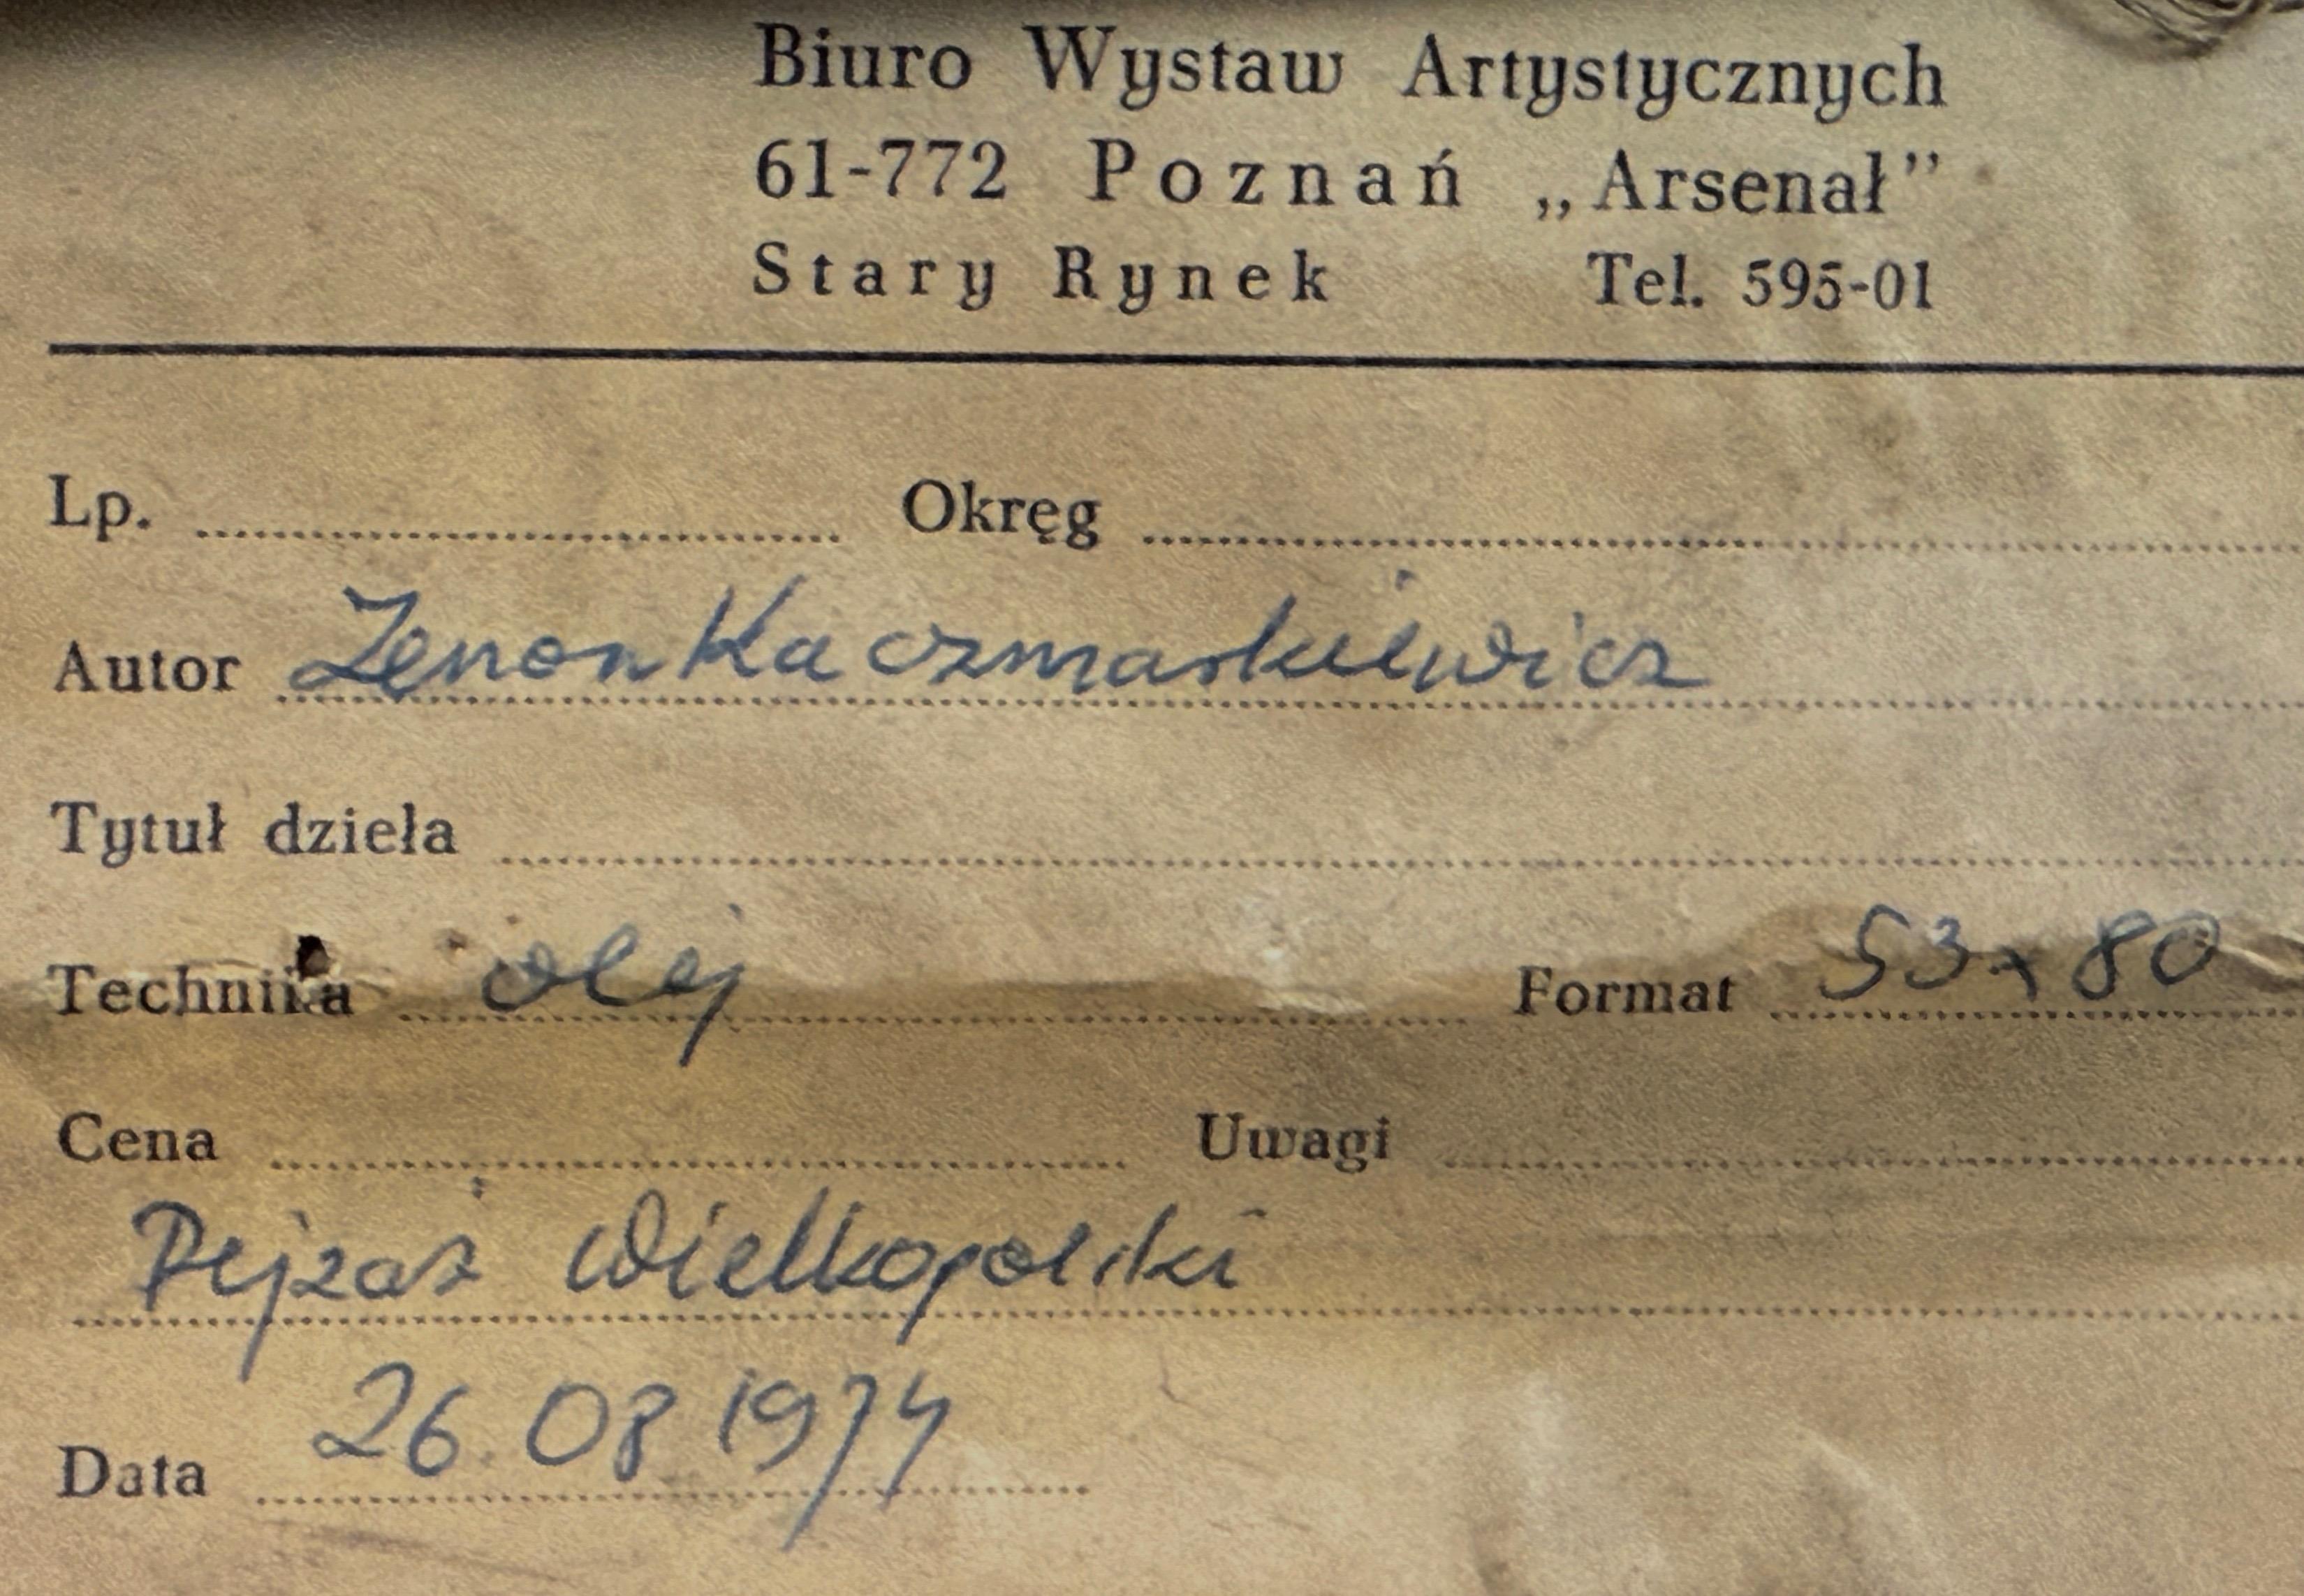 Biuro Wystaw Artystycznych
61-772 Poznań „Arsenał”
Stary Rynek Tel. 595-01
Lp. Okręg
Autor Zenon Kaczmarkiewicz
Tytuł dzieła
Technika olej Format 53x80
Cena Uwagi
Pejzaż Wielkopolski
Data 26.08 1974